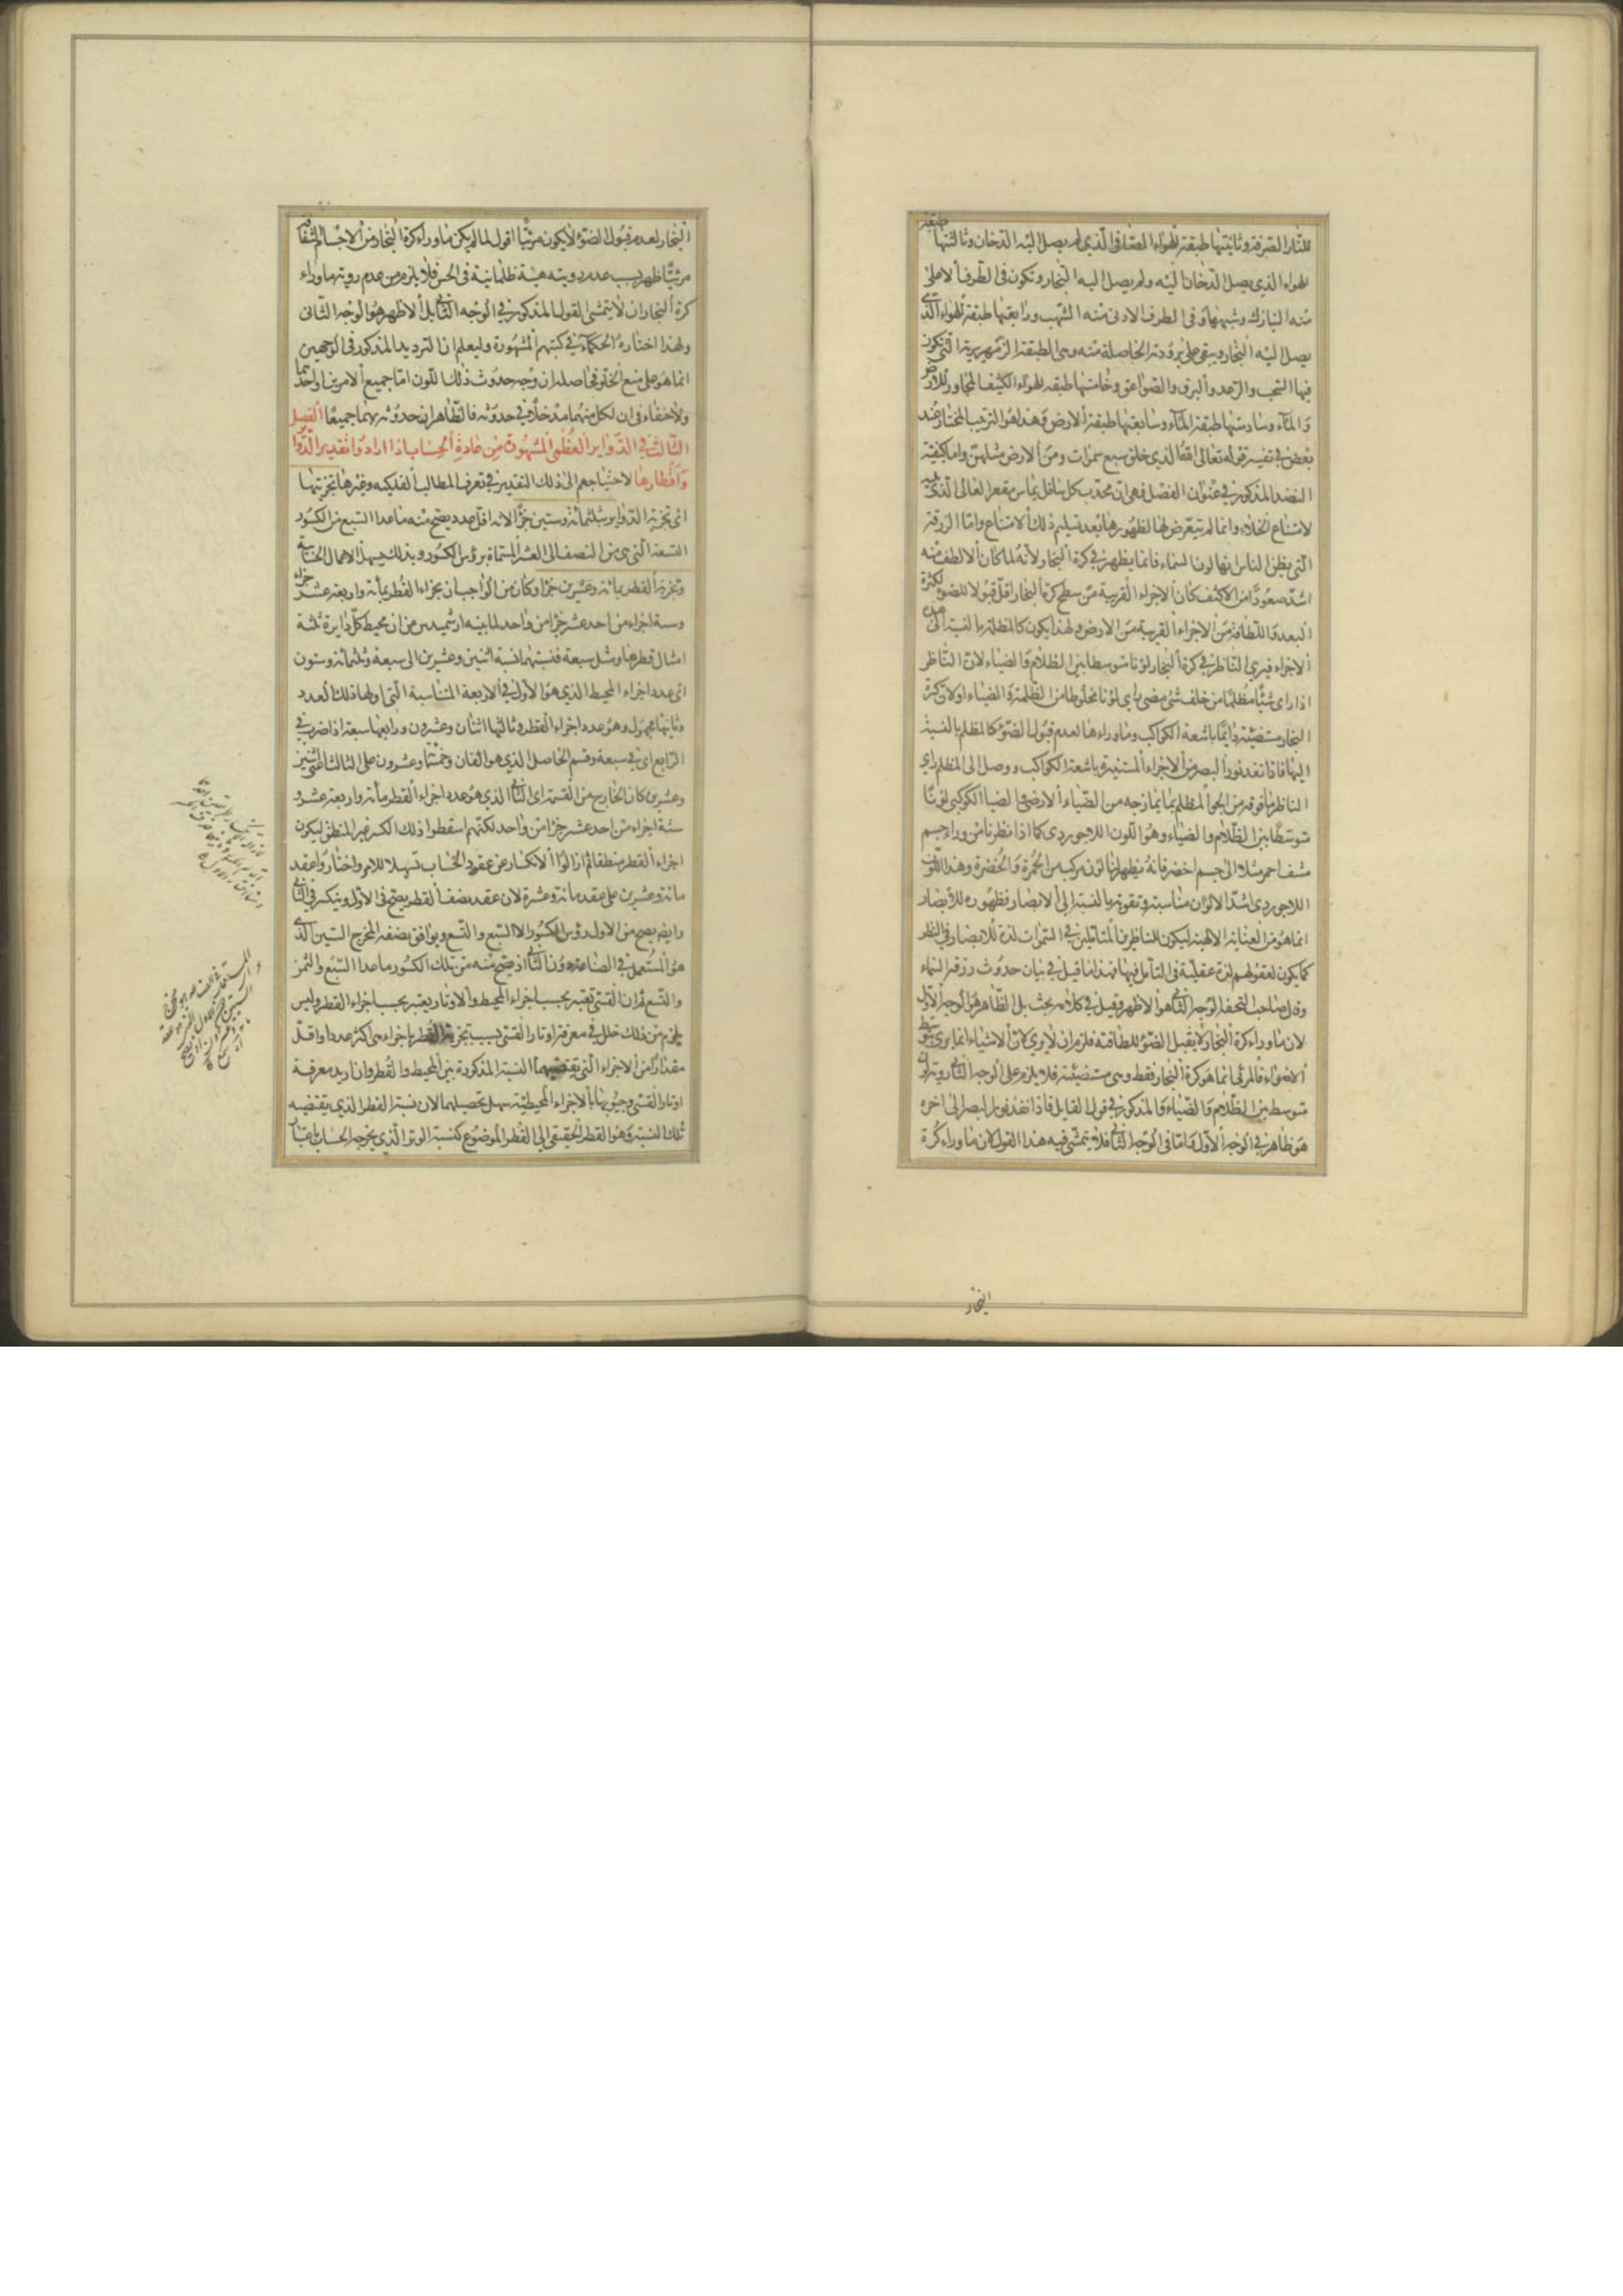 للنار الصرفة وثانيتها طبقة الهواء الصافى الذي لم يصل اليه الدخان وثالثتها طبقة
الهواء الذي يصل الدخان اليه ولم يصل اليه البخار وتكون فى الطرف الاعلى
منه النيازك وشبهها وفى الطرف الادنى منه الشهب ورابعتها طبقة الهواء الذي
يصل اليه البخار ويبقى على برودته الحاصلة منه وهى الطبقة الزمهريرية التى تكون
فيها السحب والرعد والبرق والصواعق وخامستها طبقة الهواء الكثيف المجاور للارض
والماء وسادستها طبقة الماء وسابعتها طبقة الارض وهذا هو الترتيب المختار عند
بعض فى تفسير قوله تعالى الله الذي خلق سبع سموات ومن الارض مثلهن واما كيفية
النضد المذكور فى عنوان الفصل فهى ان محدب كل سافل يماس مقعر العالى الذى
لامتناع الخلاء وانما لم يتعرض لها لظهورها بعد تسليم ذلك الامتناع واما الزرقة
التى يظن الناس انها لون السماء فانما يظهر فى كرة البخار لانه لما كان الالطف منه
اشد صعودا من الاكثف كان الاجزاء القريبة من سطح كرة البخار اقل قبولا للضوء لكثرة
البعد واللطافة من الاجزاء القريبة من الارض ولهذا يكون كالمظلمة بالنسبة الى هذه
الاجزاء فيرى الناظر فى كرة البخار لونا متوسطا بين الظلام والضياء لان الناظر
اذا راى شيئا مظلما من خلف شئ مضى راى لونا مخلوطا من الظلمة والضياء او لان كرة
البخار مستضيئة دائما باشعة الكواكب وما وراءها لعدم قبول الضوء كالمظلم بالنسبة
اليها فاذا نفذ نور البصر من الاجزاء المستنيرة باشعة الكواكب ووصل الى المظلم راى
الناظر ما فوقه من الجو المظلم بما يمازجه من الضياء الارضى والضياء الكوكبى لونا
متوسطا بين الظلام والضياء وهو اللون اللاجوردى كما اذا نظرنا من وراء جسم
مشف احمر مثلا الى جسم اخضر فانه يظهر لنا لون مركب من الحمرة والخضرة وهذا اللون
اللاجوردى اشد الالوان مناسبة وتقوية بالنسبة الى الابصار فظهوره للابصار
انما هو من العناية الالهية ليكون للناظرين المتاملين فى السموات لذة للابصار فى النظر
كما يكون لعقولهم لذة عقلية فى التامل فيها فهذا ما قيل فى بيان حدوث زرقة السماء
وقال صاحب التحفة الوجه الثانى هو الاظهر وقيل فى كلامه بحث بل الظاهر هو الوجه الاول
لان ما وراء كرة البخار لا يقبل الضوء للطافته فلزم ان لا يرى لان الاشياء انما يرى بتوسط
الاضواء فالمرئى انما هو كرة البخار فقط وهى مستضيئة فلا يلزم على الوجه الثانى رؤية لون
متوسط بين الظلام والضياء والمذكور فى قول القايل فاذا نفذ نور البصر الى اخره
هو ظاهر فى الوجه الاول واما فى الوجه الثانى فلا يتمشى فيه هذا القول لان ما وراء كرة
البخار
البخار لعدم قبول الضوء لا يكون مرئيا اقول لما لم يكن ما وراء كرة البخار من الاجسام الشفافة
مرئيا ظهر بسبب عدم رويته هيئة ظلمانية فى الحس فلا يلزم من عدم روية ما وراء
كرة البخار ان لا يتمشى القول المذكور فى الوجه الثانى بل الاظهر هو الوجه الثانى
ولهذا اختاره الحكماء فى كتبهم المشهورة وليعلم ان الترديد المذكور فى الوجهين
انما هو على منع الخلو فى اصله ان وجه حدوث ذلك اللون اما جميع الامرين او احدهما
ولا خفاء فى ان لكل منهما مدخلا فى حدوثه فالظاهر ان حدوثه بهما جميعا الفصل
الثالث فى الدواير العظمى المشهورة من عادة الحساب اذا ارادوا تقدير الدواير
واقطارها لاحتياجهم الى ذلك التقدير فى تعرف المطالب الفلكية وغيرها تجزيتها
اى تجزية الدواير بثلثمائة وستين جزءا لانه اقل عدد يصح منه ما عدا السبع من الكسور
التسعة التى هى من النصف الى العشر المسماة برؤس الكسور وبذلك يسهل الاعمال الحسابية
وتجزية القطر بمائة وعشرين جزءا وكان من الواجب ان يجزاء القطر بمائة واربعة عشر جزءا
وستة اجزاء من احد عشر جزءا من واحد لما بينه ارشميدس من ان محيط كل دايرة ثلثة
امثال قطرها ومثل سبعه فنسبتهما نسبة اثنين وعشرين الى سبعة وثلثمائة وستون
اى عدد اجزاء المحيط الذي هو الاول فى الاربعة المتناسبة التى اولها ذلك العدد
وثانيها مجهول وهو عدد اجزاء القطر وثالثها اثنان وعشرون ورابعها سبعة اذا ضرب فى
الرابع اى فى سبعة وقسم الحاصل الذي هو الفان وخمسمائة وعشرون على الثالث اعنى اثنين
وعشرين كان الخارج من القسمة اى الثانى الذي هو عدد اجزاء القطر مائة واربعة عشر و
ستة اجزاء من احد عشر جزءا من واحد لكنهم اسقطوا ذلك الكسر غير المنطق ليكون
اجزاء القطر منطقا ثم ازالوا الانكسار عن عقود الحساب تسهيلا للامر واختاروا عقد
مائة وعشرين على عقد مائة وعشرة لان عقد نصف القطر يصح فى الاول وينكسر فى الثانى
وايضا يصح من الاول رؤس الكسور الا السبع والتسع ويوافق نصفه المخرج الستين الذي
هو المستعمل فى الصناعة دون الثانى اذ يصح منه من تلك الكسور ما عدا السبع والثمن
والتسع ثم ان القسى يعتبر بحسب اجزاء المحيط والاوتار يعتبر بحسب اجزاء القطر وليس
يلزم من ذلك خلل فى معرفة اوتار القسى بسبب تجزية القطر باجزاء هى اكثر عددا واقل
مقدارا من الاجزاء التى يقتضيها النسبة المذكورة بين المحيط والقطر وان اريد معرفة
اوتار القسى وجيوبها بالاجزاء المحيطية سهل تحصيلهما لان نسبة القطر الذي يقتضيه
تلك النسبة وهو القطر الحقيقى الى القطر الموضوع كنسبة الوتر الذي يخرجه الحساب باعتبار